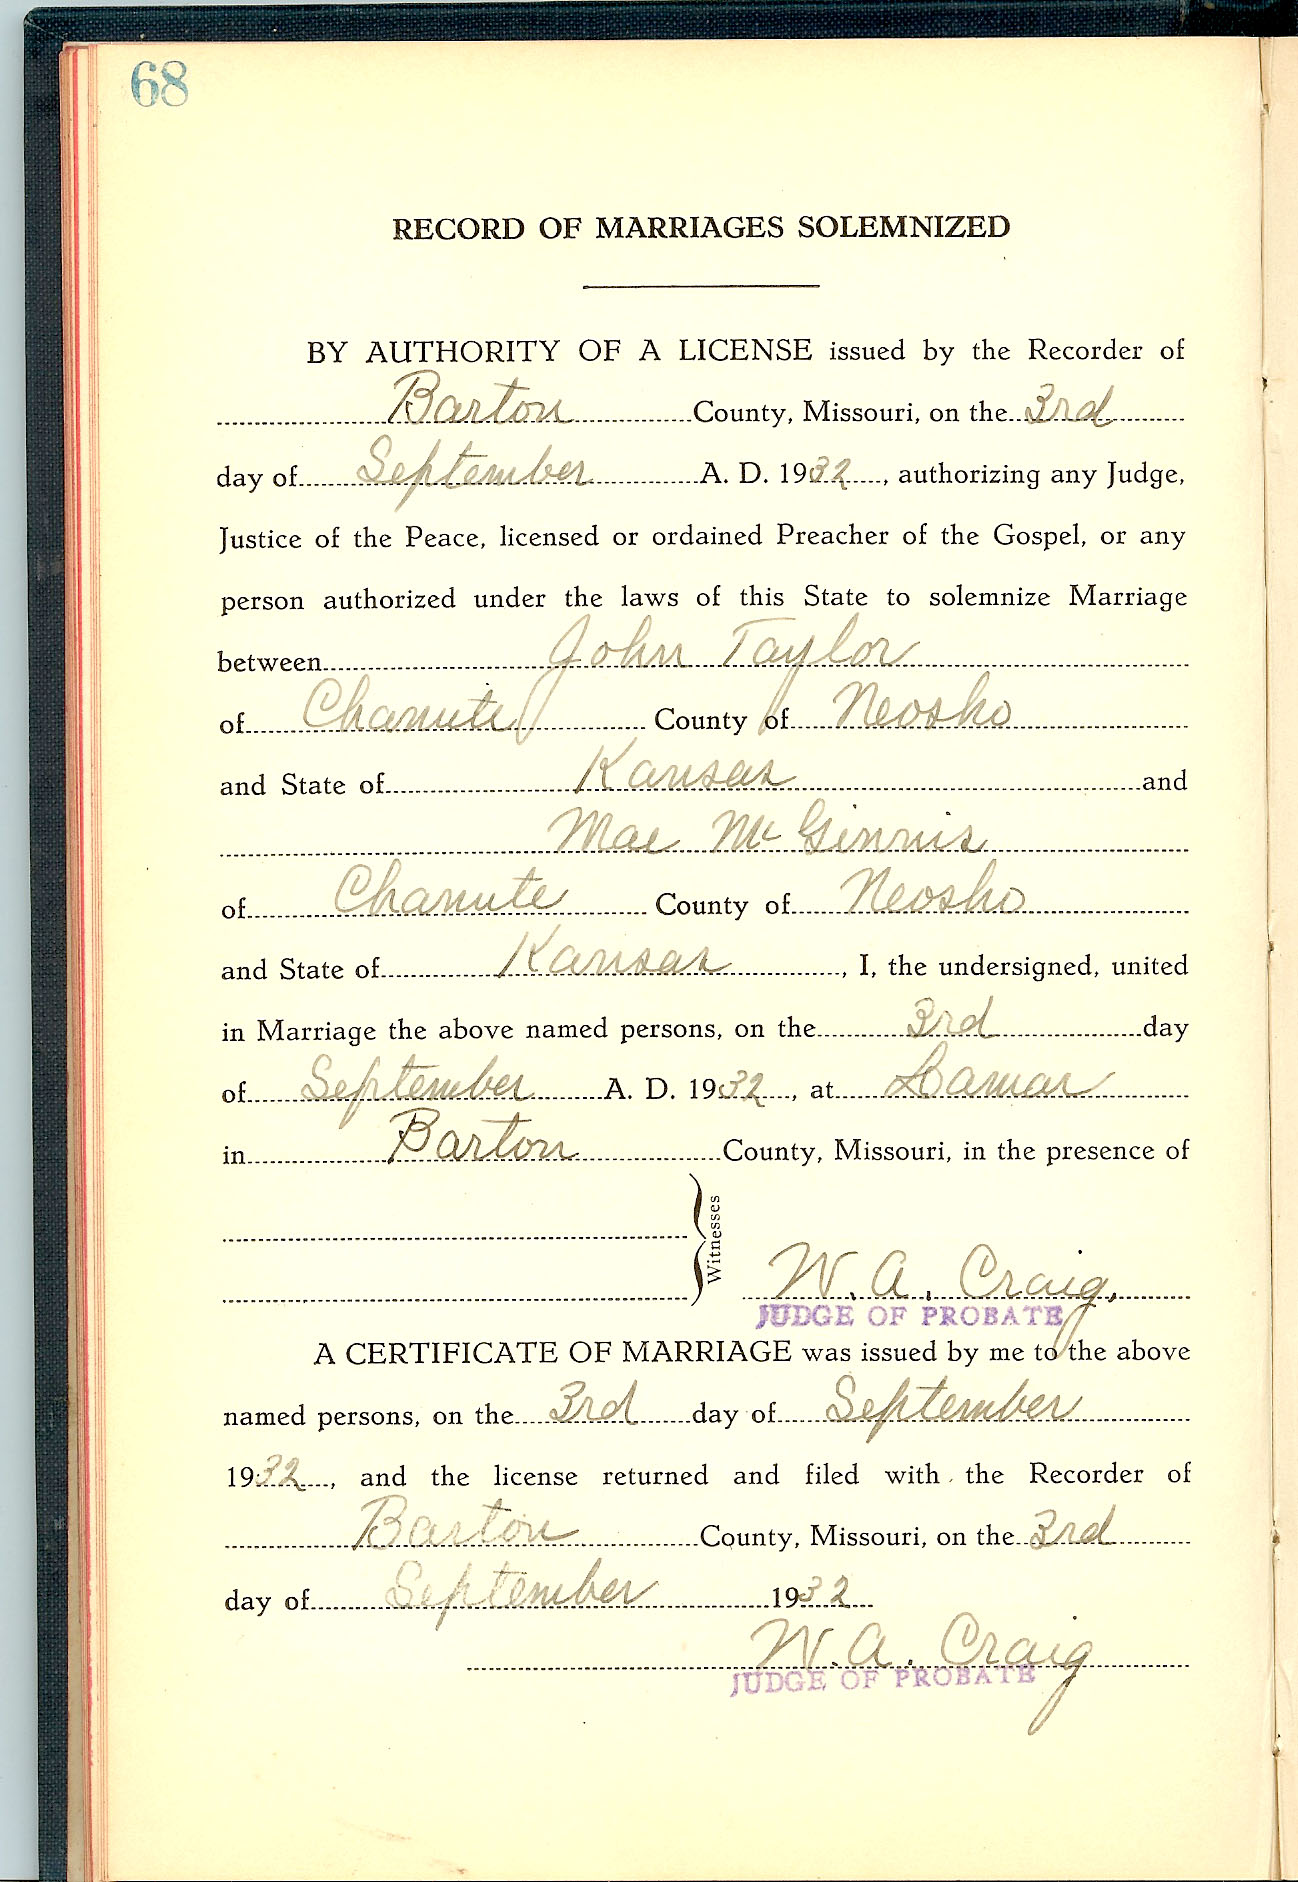 68
RECORD OF MARRIAGES SOLEMNIZED
BY AUTHORITY OF A LICENSE issued by the Recorder of
Barton County, Missouri, on the 3rd
day of September A. D. 1932, authorizing any Judge,
Justice of the Peace, licensed or ordained Preacher of the Gospel, or any
person authorized under the laws of this State to solemnize Marriage
between John Taylor
of Chanute County of Neosho
and State of Kansas and
Mae McGinnis
of Chanute County of Neosho
and State of Kansas, I, the undersigned, united
in Marriage the above named persons, on the 3rd day
of September A. D. 1932, at Lamar
in Barton County, Missouri, in the presence of
Witnesses
W. A. Craig.
JUDGE OF PROBATE
A CERTIFICATE OF MARRIAGE was issued by me to the above
named persons, on the 3rd day of September
1932, and the license returned and filed with the Recorder of
Barton County, Missouri, on the 3rd
day of September 1932
W. A. Craig
JUDGE OF PROBATE